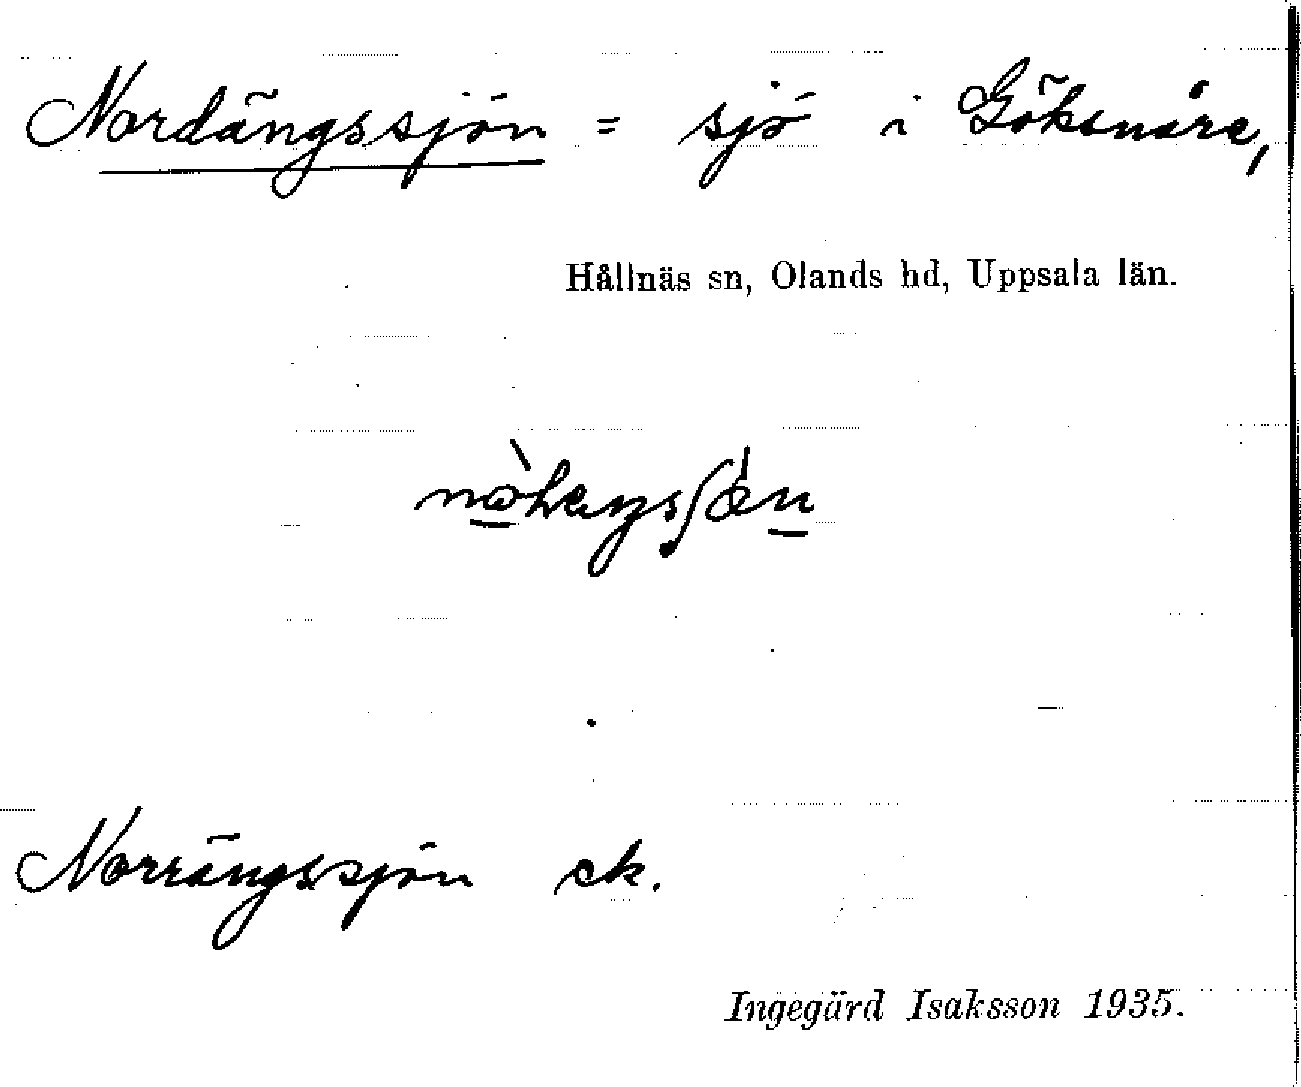 Nordängssjön = sjö i Göksnåre,
Hållnäs sn, Olands hd, Uppsala län.
Norrängssjön ek.
Ingegärd Isaksson 1935.